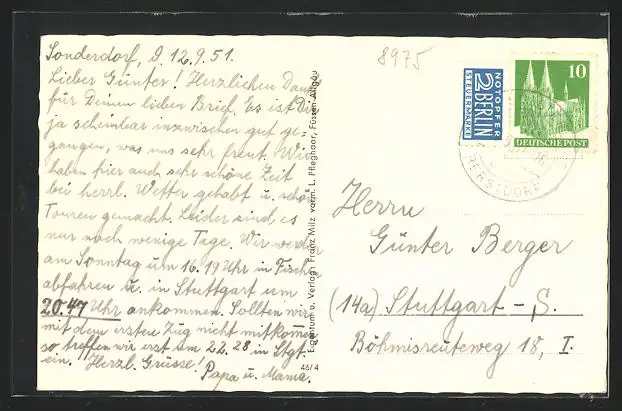 Sonderdorf, d 12.9.51.
Lieber Günter! Herzlichen Dank
für Deinen lieben Brief. Es ist Dir
ja scheinbar inzwischen gut ge-
gangen, was uns sehr freut. Wir
haben hier auch sehr schöne Zeit
bei herrl. Wetter gehabt u. schöne
Touren gemacht. Leider sind es
nur noch wenige Tage. Wir werden
am Sonntag um 16.19 Uhr in Fischen
abfahren u. in Stuttgart um
20.47 Uhr ankommen. Sollten wir
mit dem ersten Zug nicht mitkommen
so treffen wir erst um 22.28 in Stgt.
ein. Herzl. Grüsse!
Papa u. Mama.
Eigentum u. Verlag: Franz Milz vorm. L. Pfleghaar, Füssen-Allgäu
46/4
8975
NOTOPFER
2 BERLIN
STEUERMARKE
10
DEUTSCHE POST
Herrn
Günter Berger
(14a) Stuttgart-S.
Böhmisreuteweg 18, I.